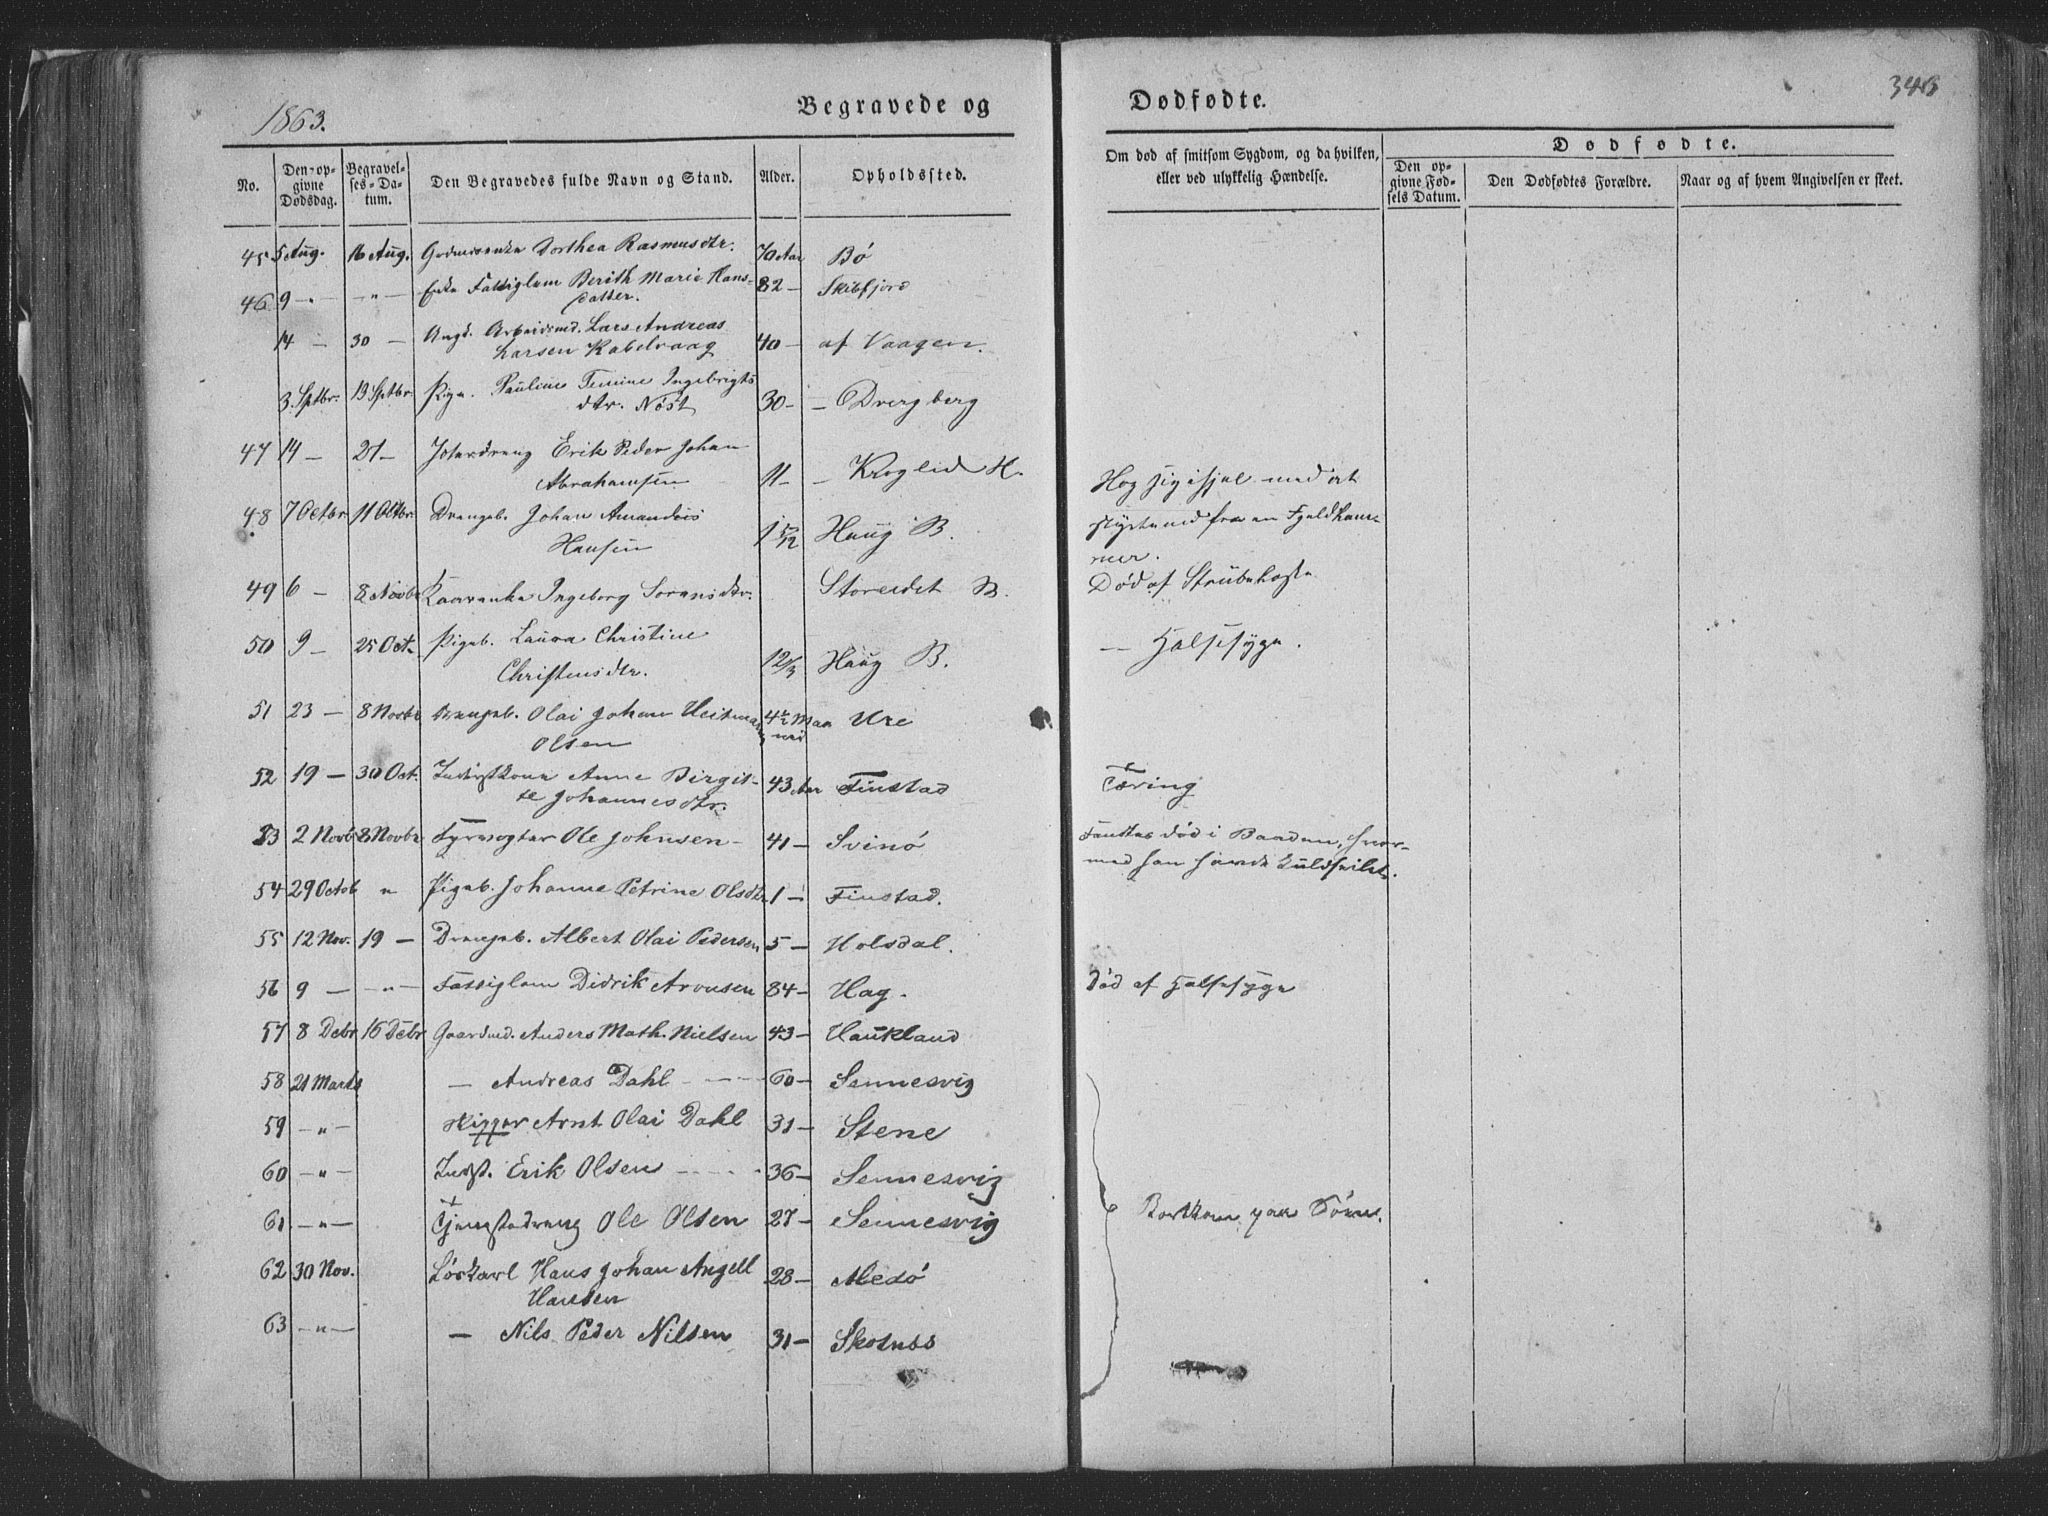 1863.
Begravede og
Dødfødte.
No.
Den opgivne Dødsdag.
Begravelses-Datum.
Den Begravedes fulde Navn og Stand.
Alder.
Opholdssted.
Om død af smitsom Sygdom, og da hvilken, eller ved ulykkelig Hændelse.
Dødfødte.
Den opgivne Fødsels Datum.
Den Dødfødtes Forældre.
Naar og af hvem Angivelsen er skeet.
45 5 Aug. 16 Aug. Dorthea Rasmusdtr. 70 Aar Bø
46 9 — " — — " — Enke Fattiglem Berith Marie Hans-
datter. 82 — Skibfjord
14 — 30 — Ungk. Arbeidsmd. Lars Andreas
Larsen Kabelvaag 40 — af Vaagen.
3. Sptbr. 13 Sptbr. Pige. Pauline Ingebrigts
dtr. Nöst 30 — — Dvergberg
47 14 — 27 — Erik Peder Johan
Abrahamsen 11 — — Kroglid H.
48 7 Octbr. 11 Octbr. Drengeb. Johan Amandus
Hansen 1 5/12 Haug B.
Hog sig ihjel med at
styrte ned fra en Fjeldham-
mer.
49 6 — 8 Novbr Kaarenke Ingeborg Sørensdtr. Storeidet B.
Død af Strubehoste
50 9 — 25 Oct. Pigeb. Laura Christine
Christensdtr. 12/3 Haug B.
— Halsesyge.
51 23 — 8 Novbr Drengeb. Olai Johan Heitman
Olsen 4 1/2 Maaned Ure
52 19 — 30 Oct. Inderstkone Anne Birgit-
te Johannesdtr. 43 Aar Finstad
Tæring
53 2 Novb 8 Novbr Fyrvogter Ole Johnsen — 41 — Svinø
Fantes død i Baaden, hvor-
med han havde Kuldseilet.
54 29 Octob " Pigeb. Johanne Petrine Olsdtr 1 — Finstad.
55 12 Nov. 19 — Drengeb. Albert Olai Pedersen 5 — Holsdal.
56 9 — — " — Fattiglem Didrik Aronsen 84 — Hag.
Død af Halsesyge
57 8 Debr 16 Debr Gaardmd. Anders Math. Nielsen 43 — Haukland
58 21 Marts — Andreas Dahl — 60 — Sennesvig
59 — " — Arnt Olai Dahl 31 — Stene
60 — " — Indst. Erik Olsen 36 — Sennesvig
61 — " — Tjenestedreng Ole Olsen 27 — Sennesvig
Bortkom paa Søen.
62 30 Nov. Løskarl Hans Johan Angell
Hansen 28 — Medö
63 — " — — Nils Peder Nilsen 31 — Skotnes